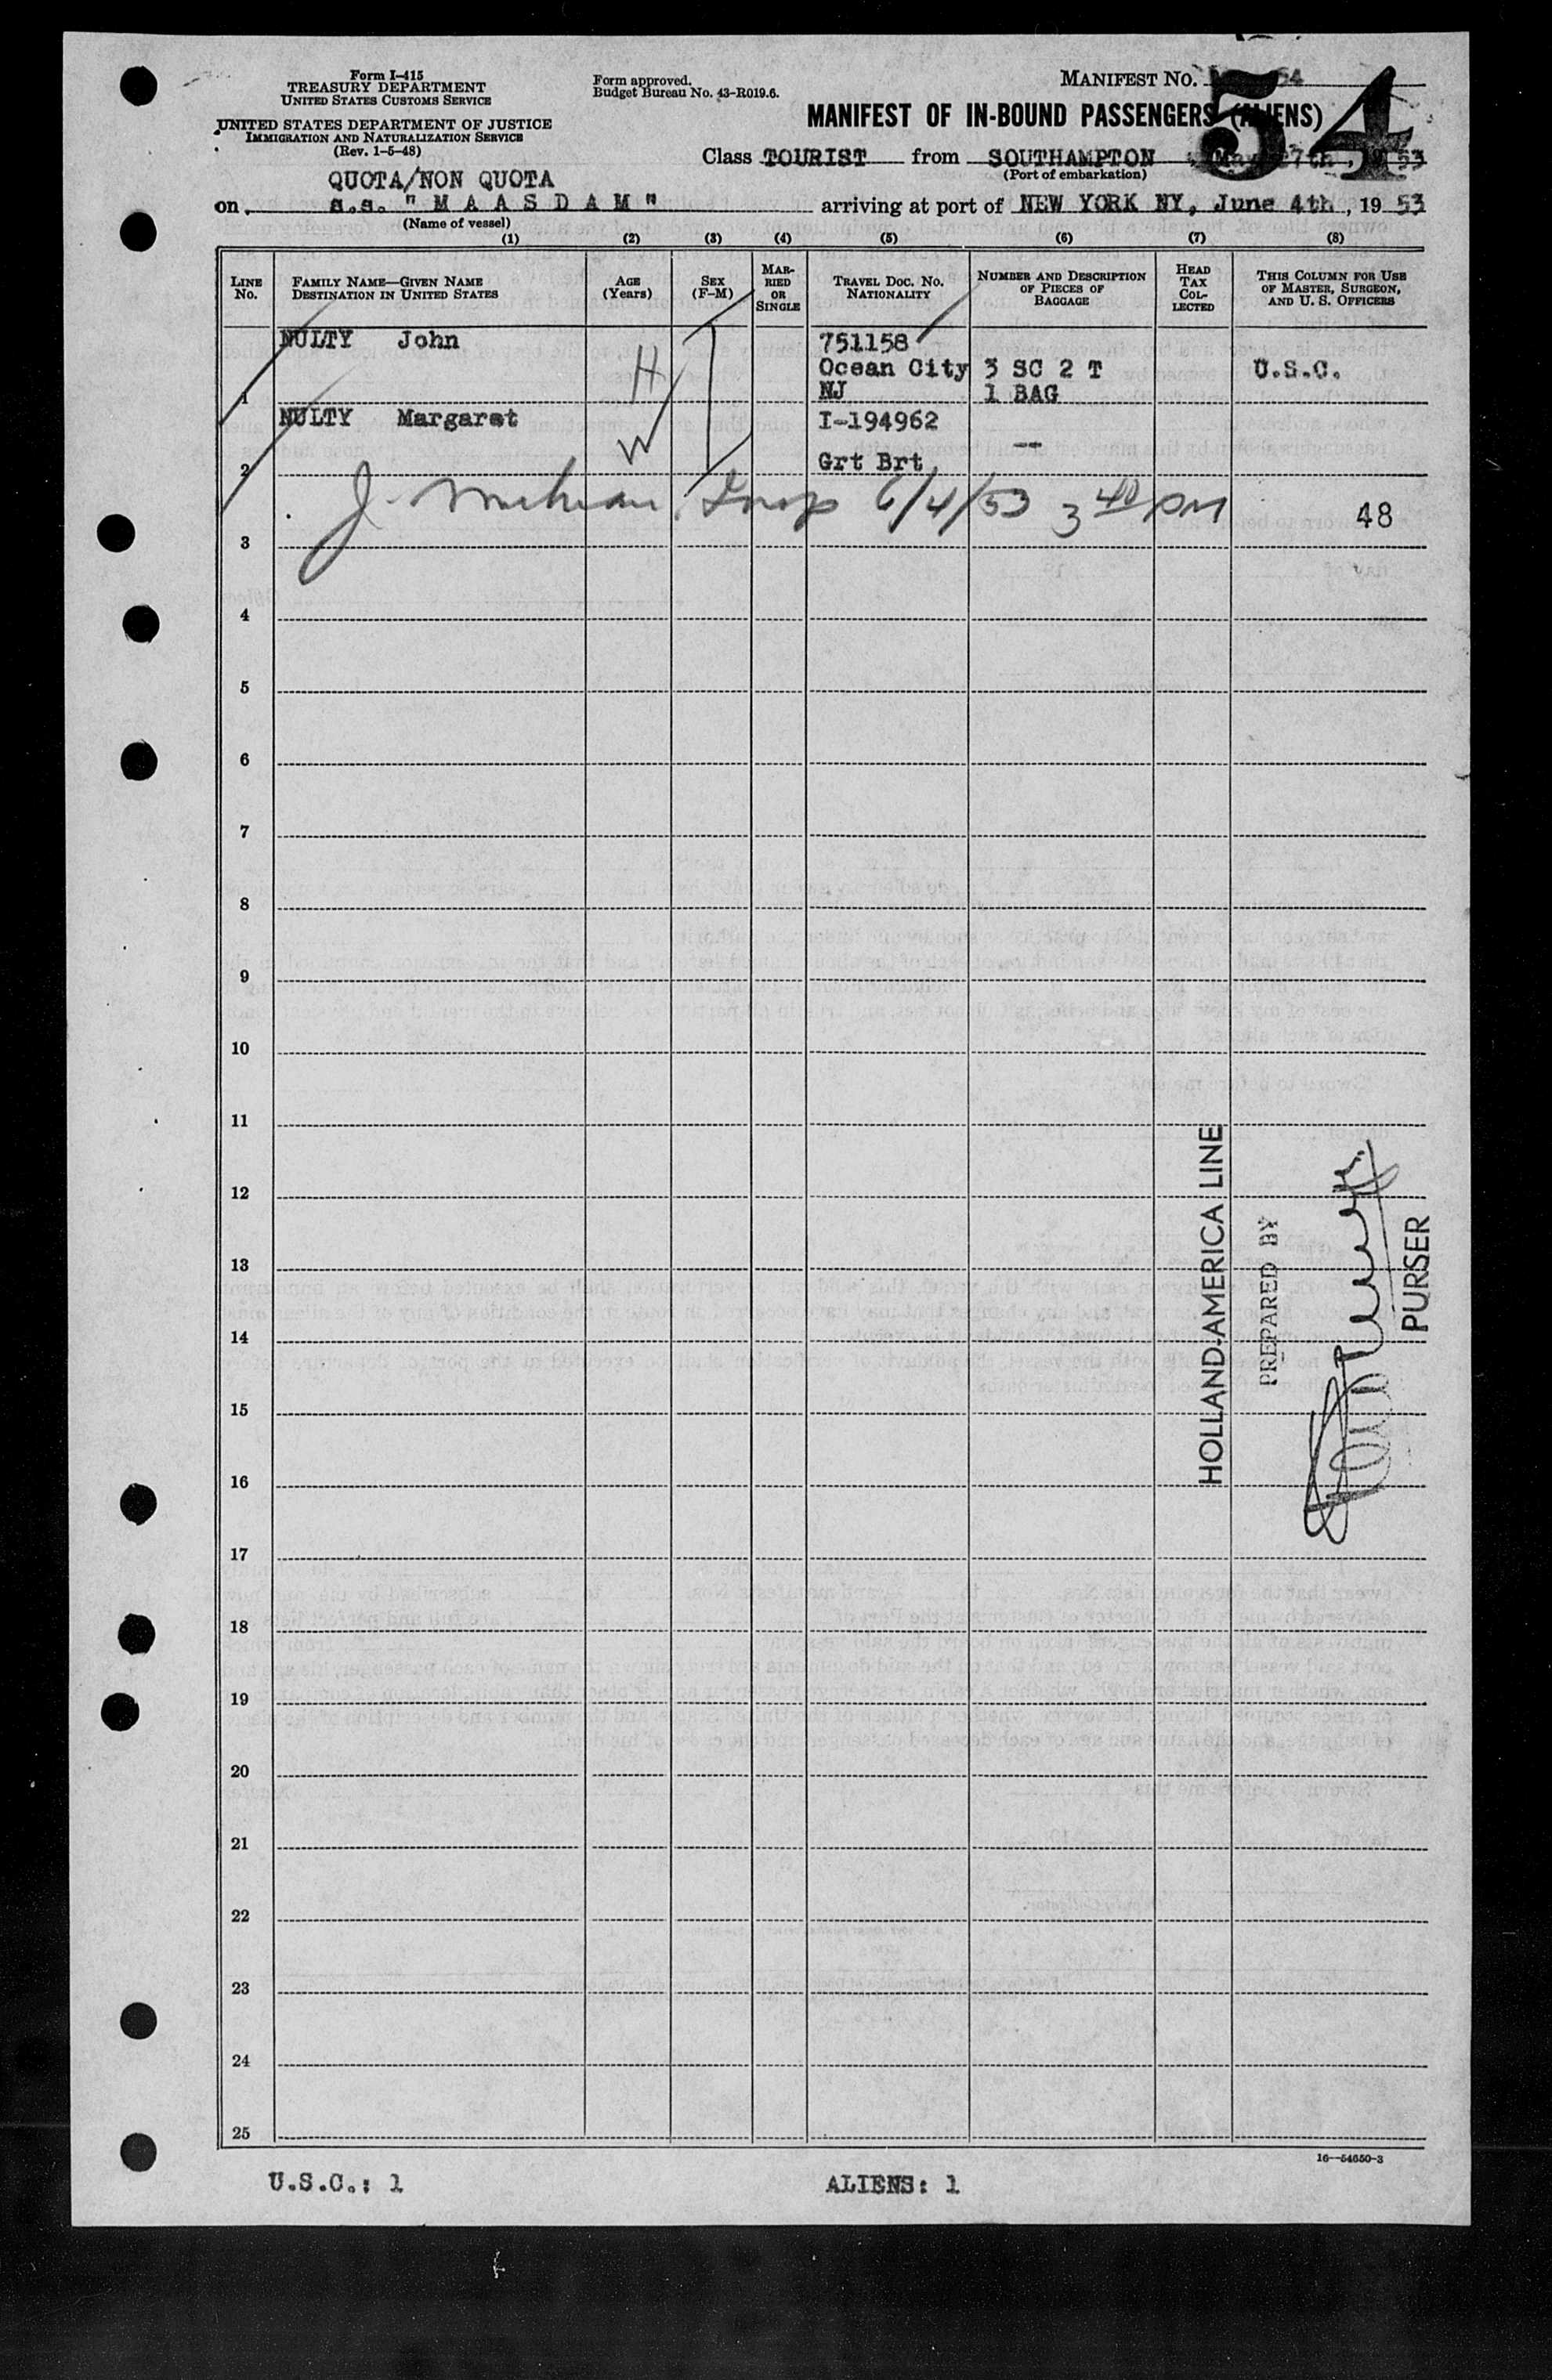 Form I-415
TREASURY DEPARTMENT
UNITED STATES CUSTOMS SERVICE
UNITED STATES DEPARTMENT OF JUSTICE
IMMIGRATION AND NATURALIZATION SERVICE
(Rev. 1-5-48)
Form approved.
Budget Bureau No. 43-R019.6.
MANIFEST NO. 54
54
MANIFEST OF IN-BOUND PASSENGERS (ALIENS)
Class TOURIST from SOUTHAMPTON, May 27th, 1953
(Port of embarkation)
QUOTA/NON QUOTA
on s.s. "M A A S D A M" arriving at port of NEW YORK NY, June 4th, 19 53
(Name of vessel)
(1) (2) (3) (4) (5) (6) (7) (8)
LINE No. FAMILY NAME—GIVEN NAME DESTINATION IN UNITED STATES AGE (Years) SEX (F-M) MARRIED OR SINGLE TRAVEL DOC. NO. NATIONALITY NUMBER AND DESCRIPTION OF PIECES OF BAGGAGE HEAD TAX COLLECTED THIS COLUMN FOR USE OF MASTER, SURGEON, AND U. S. OFFICERS
NULTY John 751158
H Ocean City 3 SC 2 T U.S.C.
1 NJ 1 BAG
NULTY Margaret I-194962
W --
2 Grt Brt
J. Insp 6/4/53 3 40 PM 48
3
4
5
6
7
8
9
10
11
12
13
14
15
16
17
18
19
20
21
22
23
24
25
HOLLAND-AMERICA LINE
PREPARED BY
PURSER
16—54650-3
U.S.C.: 1 ALIENS: 1